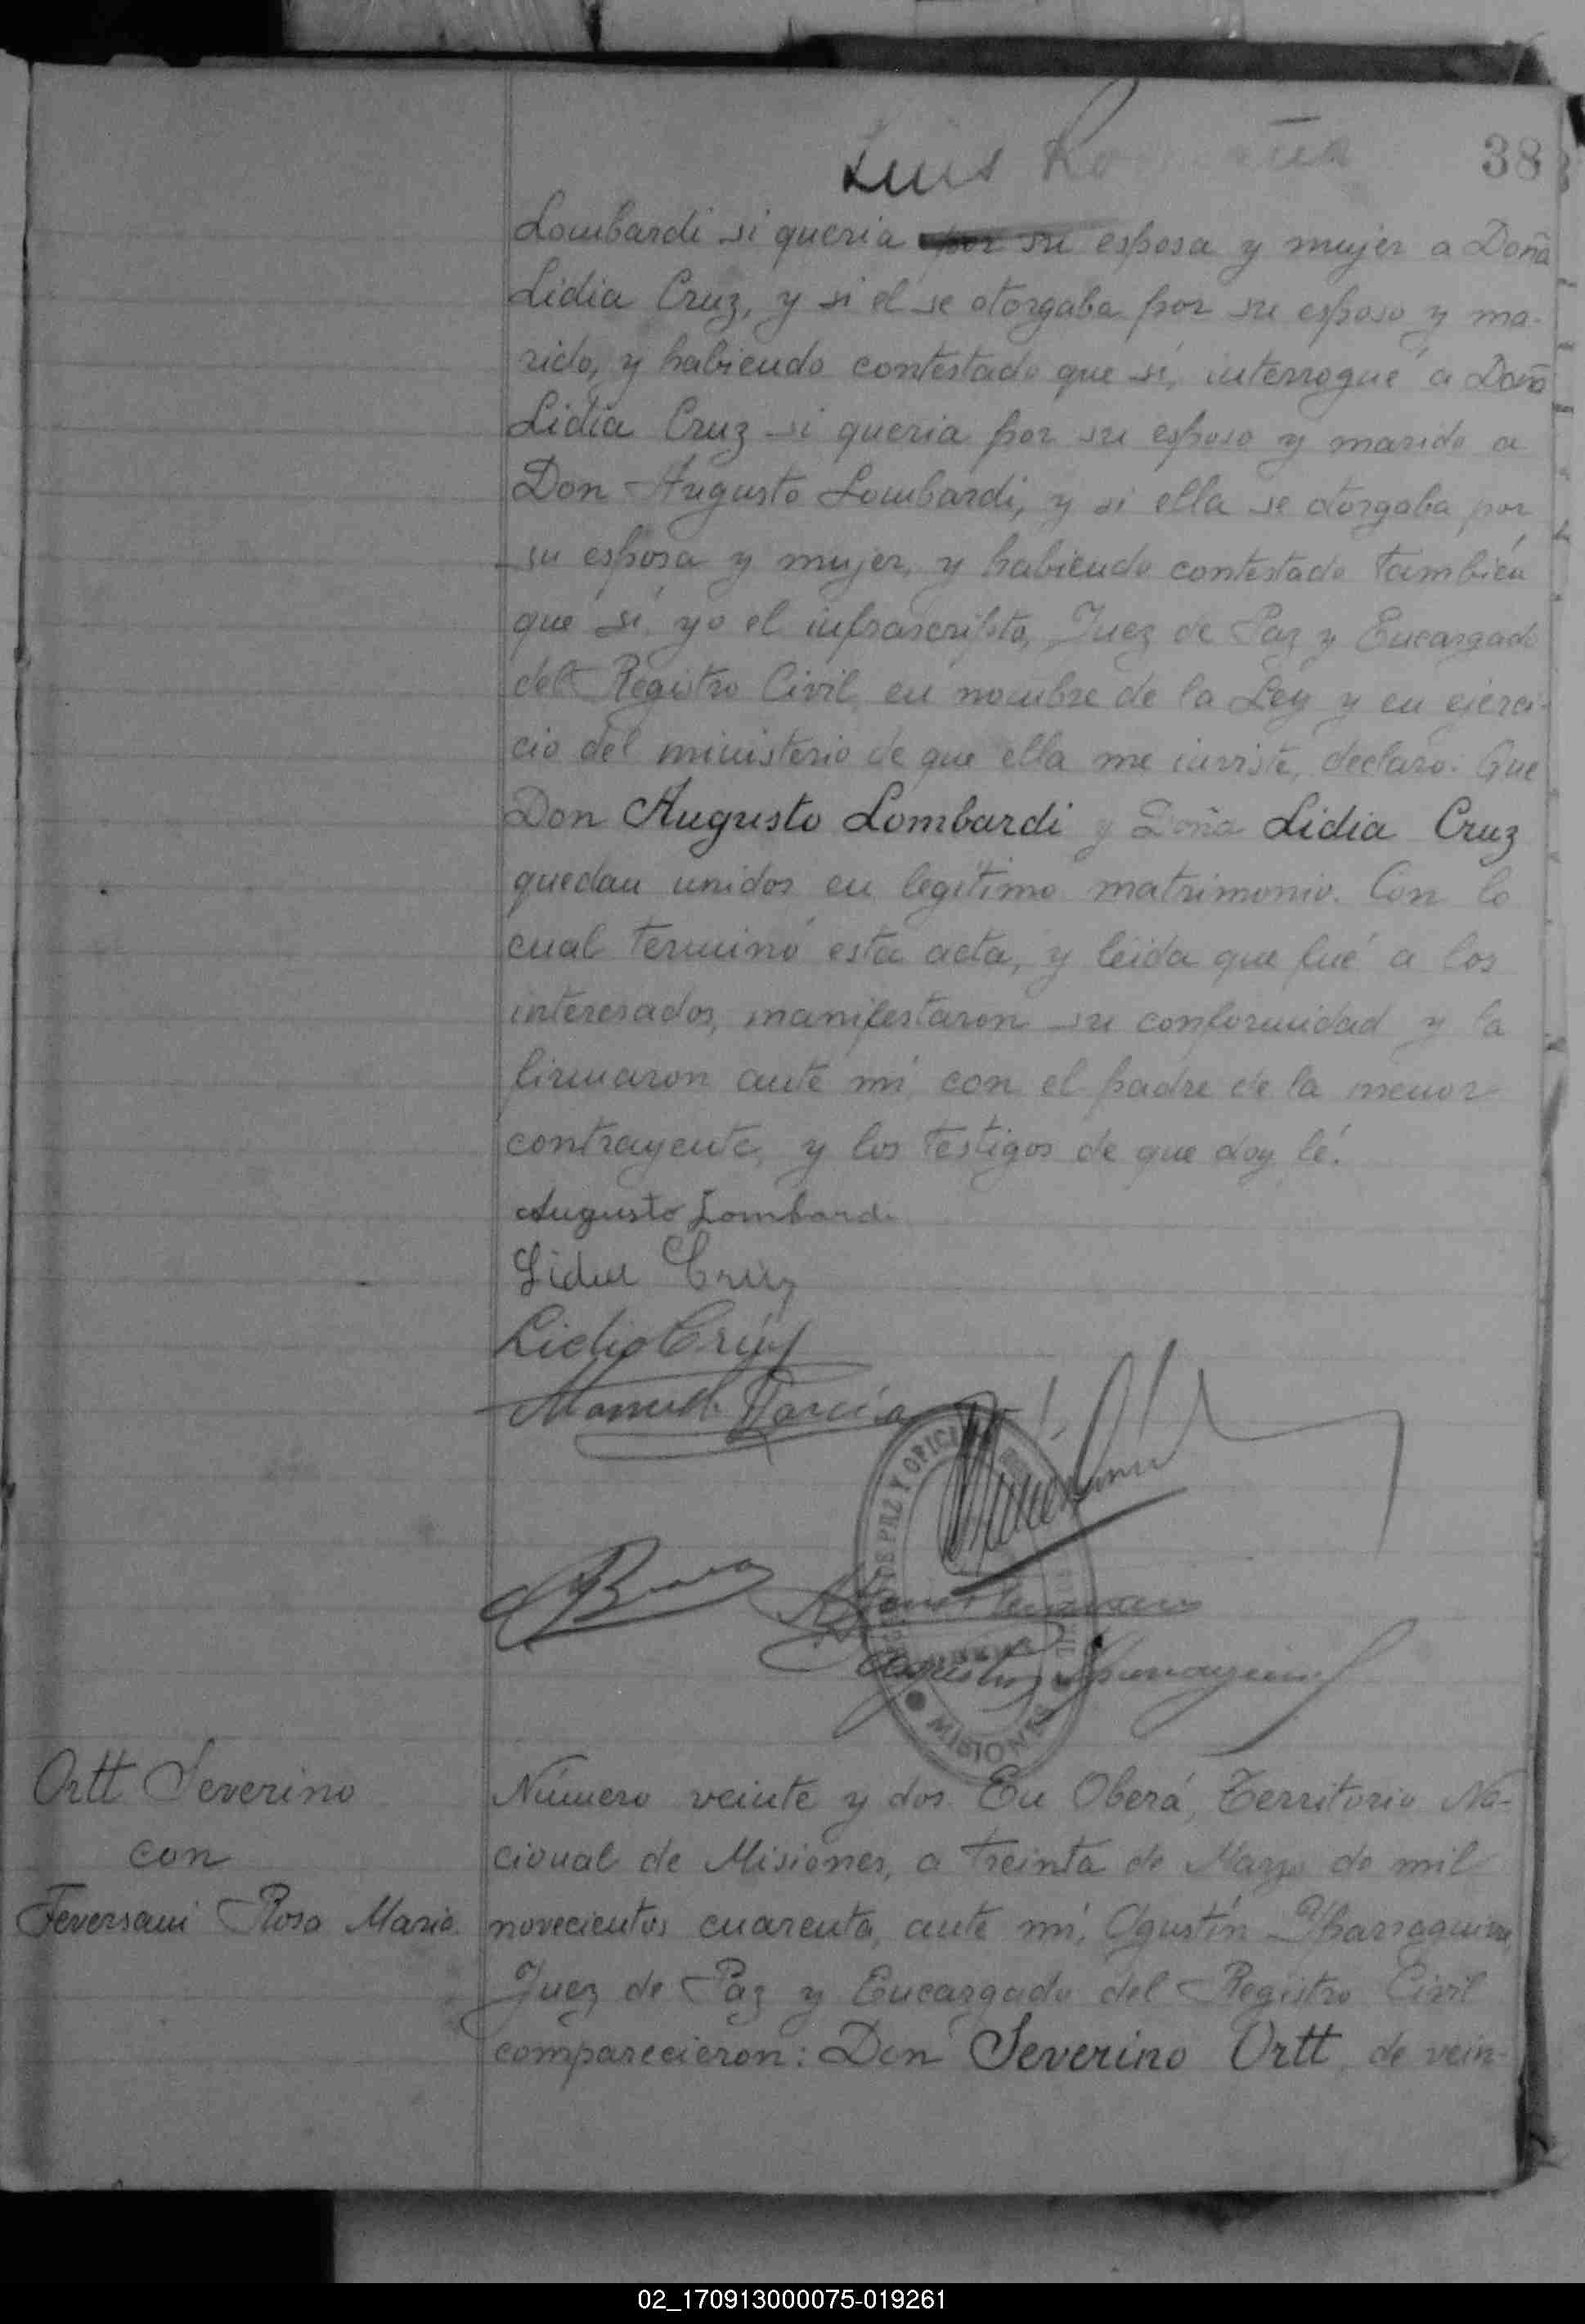 Luis
38
Lombardi si queria por su esposa y mujer a Doña
Lidia Cruz, y si el se otorgaba por su esposo y ma-
rido, y habiendo contestado que sí, interrogué a Doña
Lidia Cruz si queria por su esposo y marido a
Don Augusto Lombardi, y si ella se otorgaba por
su esposa y mujer, y habiendo contestado también
que sí, yo el infrascripto, Juez de Paz y Encargado
del Registro Civil, en nombre de la Ley y en ejerci-
cio del ministerio de que ella me inviste, declaro: Que
Don Augusto Lombardi y Doña Lidia Cruz
quedan unidos en legítimo matrimonio. Con lo
cual terminó esta acta, y leida que fué a los
interesados, manifestaron su conformidad y la
firmaron ante mí, con el padre de la menor
contrayente, y los testigos de que doy fé.
Augusto Lombardi
Lidia Cruz
Lidio Cruz
Manuel García
DE PAZ Y OFICI
MISIONES
Ortt Severino
con
Feversani Rosa Maria
Número veinte y dos. En Oberá, Territorio Na-
cional de Misiones, a treinta de Marzo de mil
novecientos cuarenta, ante mí, Agustín Yharraguirre,
Juez de Paz y Encargado del Registro Civil
comparecieron: Don Severino Ortt, de vein-
02_170913000075-019261